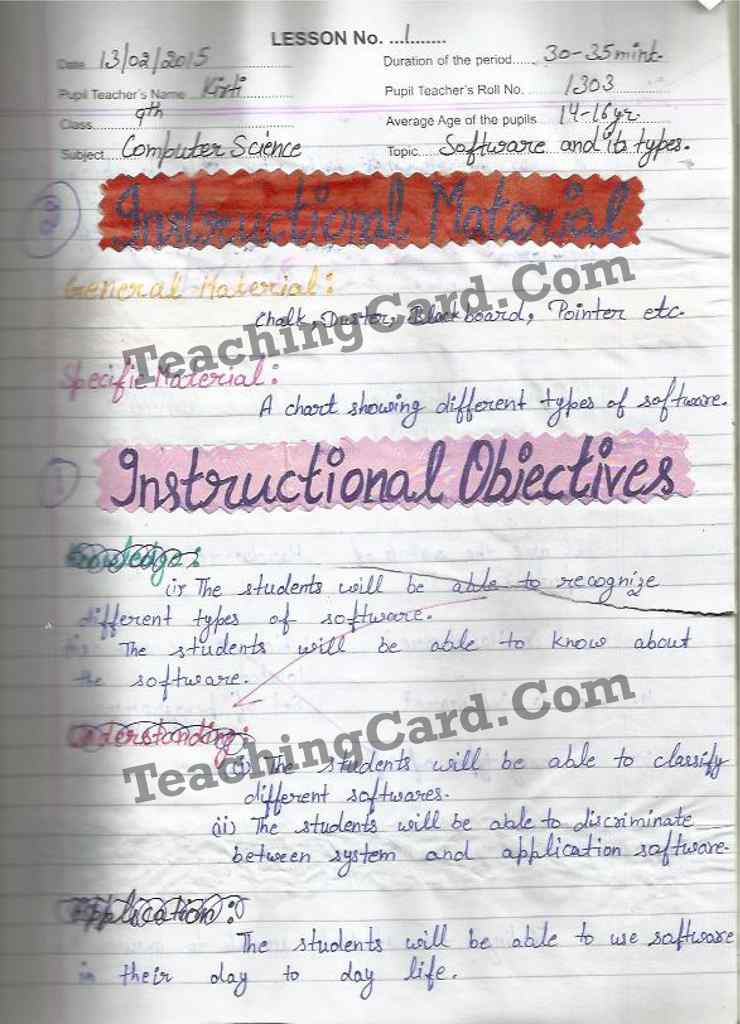 LESSON No. ...1.......
Date 13/02/2015 Duration of the period..... 30-35 mint.
Pupil Teacher's Name Kirti Pupil Teacher's Roll No. 1303
Class 9th Average Age of the pupils 14-16 yr.
Subject Computer Science Topic Software and its types.
Instructional Material
General Material:
Chalk, Duster, Blackboard, Pointer etc.
TeachingCard.Com
Specific Material:
A chart showing different types of software.
Instructional Objectives
Knowledge:
(i) The students will be able to recognize
different types of software.
The students will be able to know about
the software.
Understanding:
TeachingCard.Com
(i) The students will be able to classify
different softwares.
(ii) The students will be able to discriminate
between system and application software.
Application:
The students will be able to use software
in their day to day life.